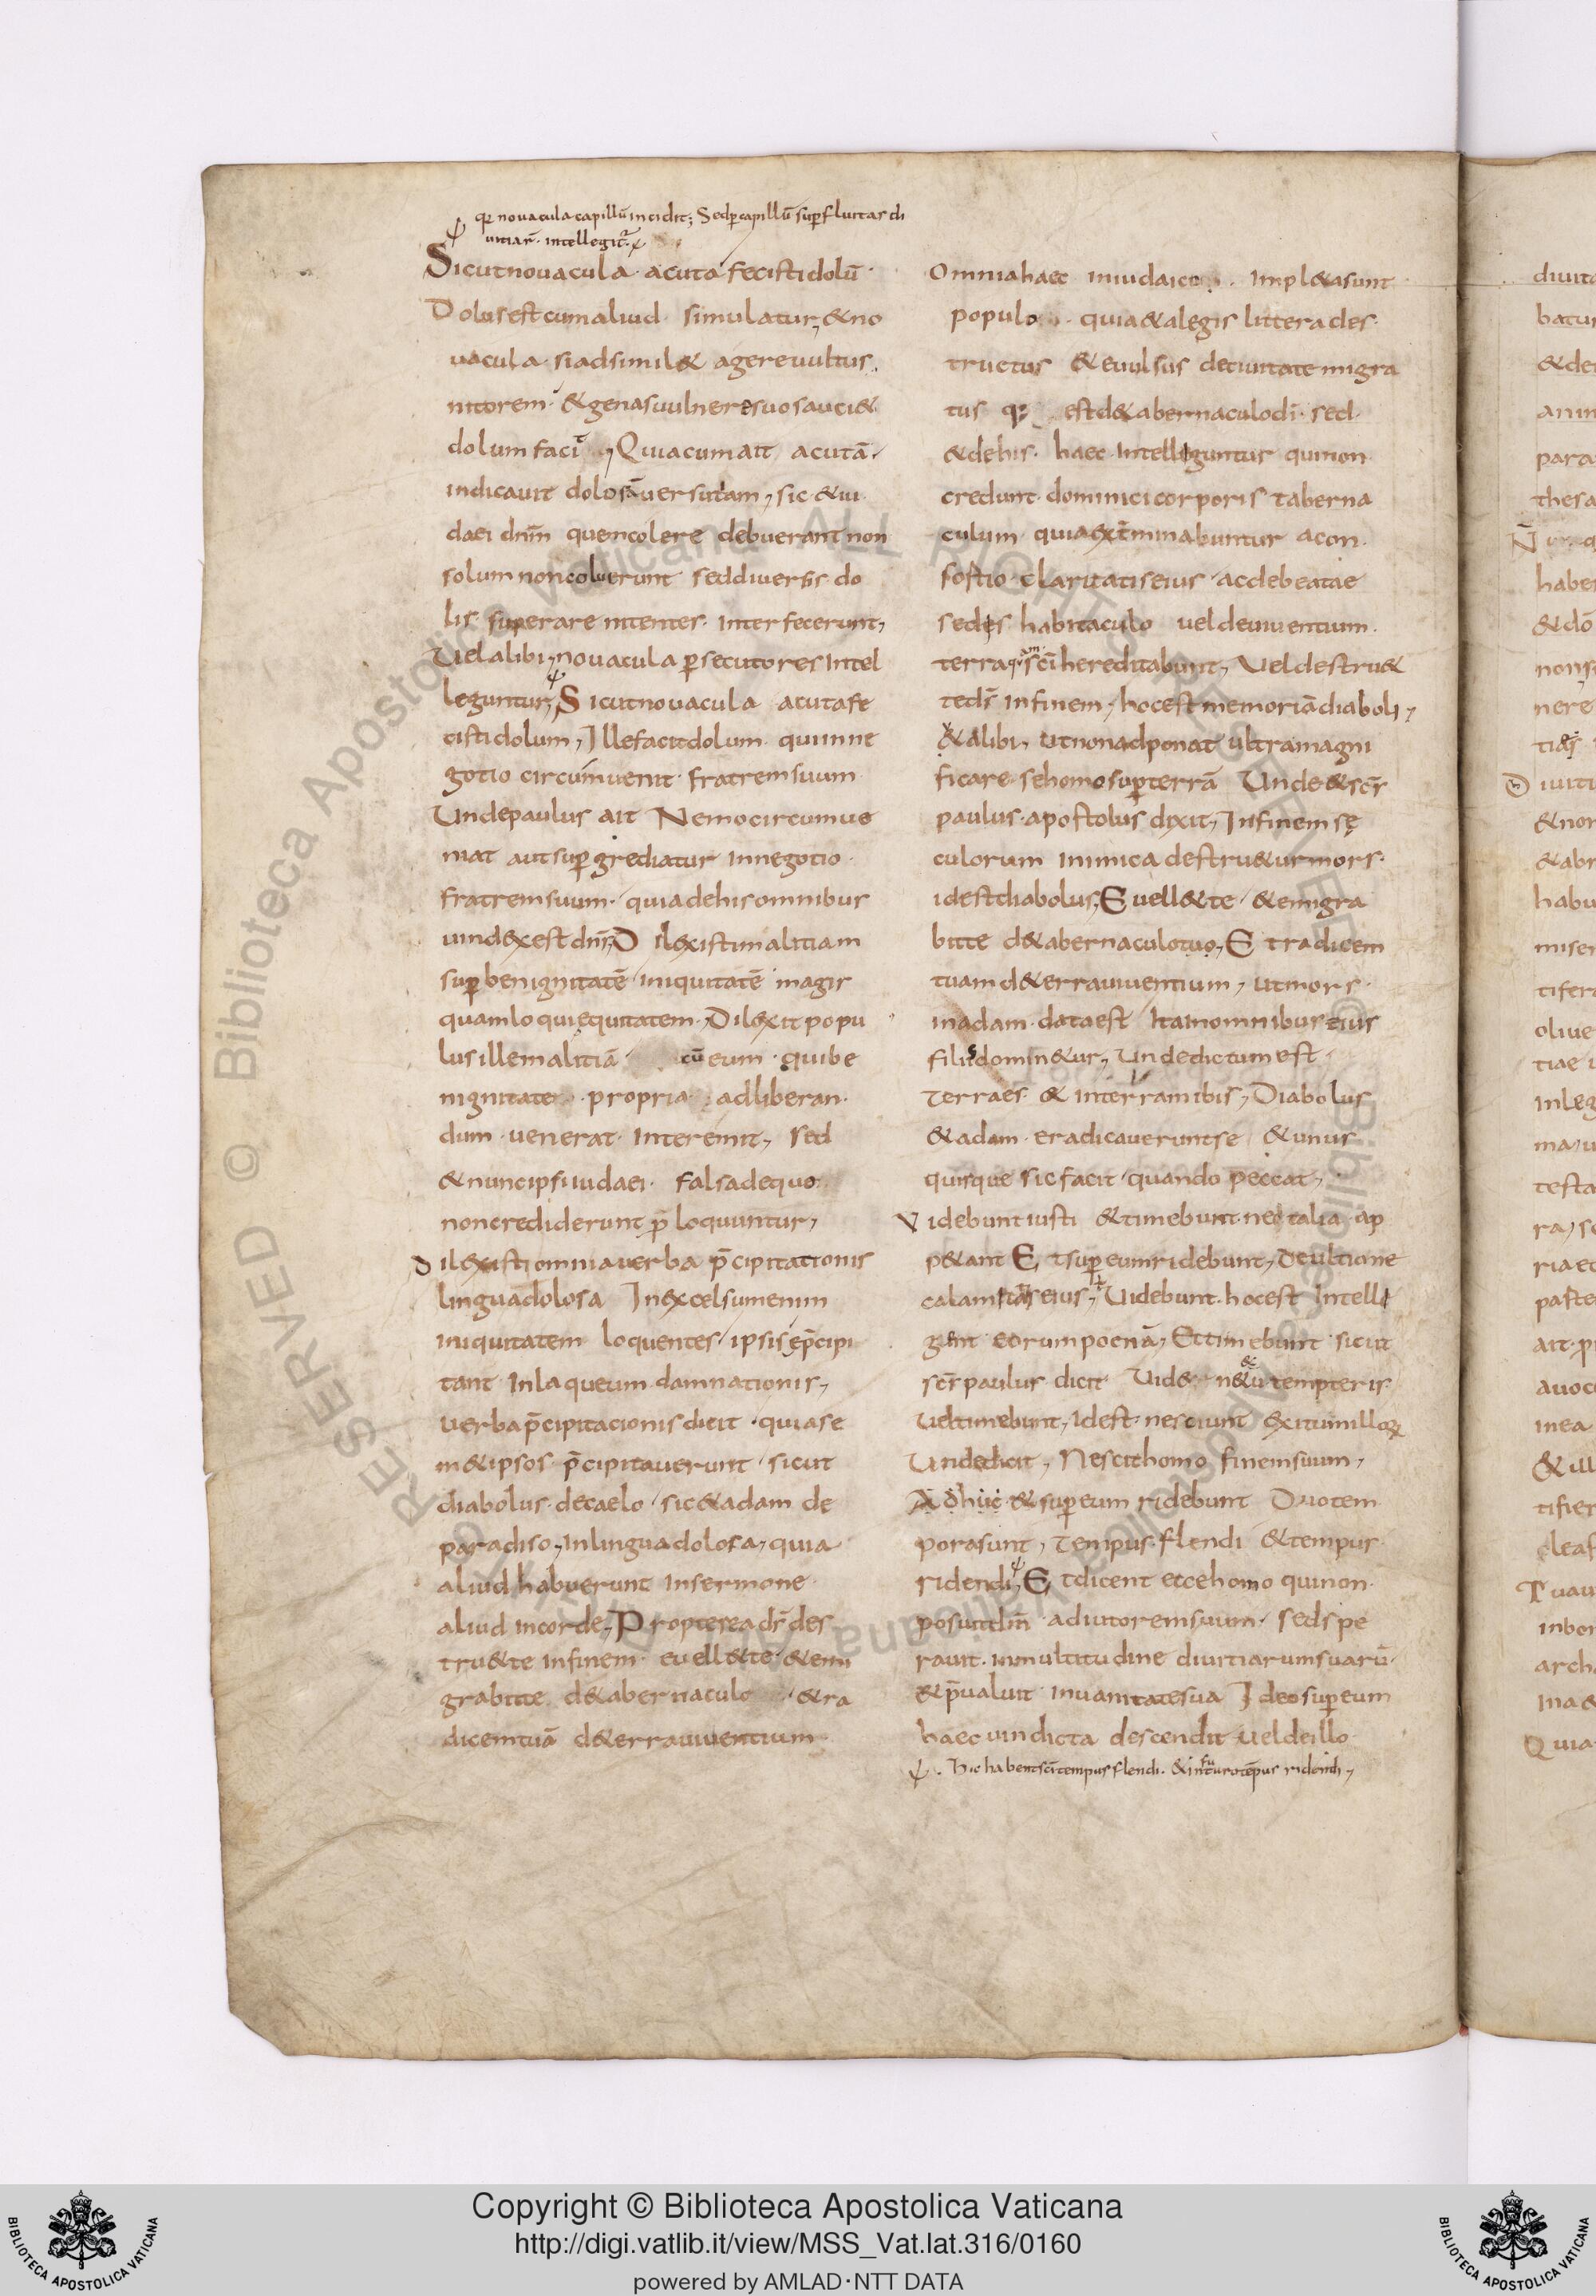 qꝛ nouacula capillū incidit; Sed p capillū sup fluitas di
uitiarū intellegitꝛ
Sicut nouacula acuta fecisti dolū
Dolus est cum aliud simulatur, & no
uacula si adsimil& agere uultus
nitorem & genas uulnere suo sauci&
dolum facit, Quia cum ait acutā
indicauit dolosā uersutam, sic & iu
daei dn̄m quen colere debuerant non
solum non coluerunt sed diuersis do
lis superare nitentes interfecerunt,
Uel alibi, nouacula p secutores intel
leguntur, Sicut nouacula acuta fe
cisti dolum, Ille facit dolum qui in ne
gotio circumuenit fratrem suum
Unde paulus ait Nemo circumue
niat aut sup grediatur in negotio
fratrem suum quia de his omnibus
uindex est dn̄s, Dilexisti malitiam
sup benignitatē iniquitatē magis
quam loqui equitatem, Dilexit popu
lus ille malitiā cū eum qui be
nignitate propria ad liberan
dum uenerat interemit, sed
& nunc ipsi iudaei falsa de quo
non crediderunt p̄ loquuntur,
Dilexisti omnia uerba p̄cipitationis
lingua dolosa In excelsum enim
iniquitatem loquentes ipsi se p̄cipi
tant in laqueum damnationis,
uerba p̄cipitacionis dicit quia se
m&ipsos p̄cipitauerunt sicut
diabolus de caelo sic & adam de
paradiso, In lingua dolosa, quia
aliud habuerunt in sermone
aliud in corde, Propterea ds̄ des
tru& te in finem euell& te & emi
grabit te de tabernaculo & ra
dicem tuā d& erra uiuentium
Omnia haec in iudaico impl&a sunt
populo quia & a legis littera des
tructus & euulsus de ciuitate migra
tus qꝛ est d& abernaculo di sed
& de his haec intelleguntur qui non
credunt dominici corporis taberna
culum quia ext̄minabuntur a con
sortio claritatis eius ac de beatae
sedis habitaculo uel de uiuentium
terra quam sc̄i hereditabunt, Uel destru&
te ds̄ in finem, hoc est memoriā diaboli,
& alibi, ut non adponat ultra magni
ficare se homo sup terrā Unde & sc̄s
paulus apostolus dixit, In finem sę
culorum inimica destru&ur mors
id est diabolus, Euell& te & emigra
bit te d& abernaculo tuo, E t radicem
tuam d& erra uiuentium, ut mors
in adam data est Ita in omnibus eius
filiis domin&ur, Unde dictum est
Terra es & in terram ibis, Diabolus
& adam eradicauerunt se & unus
quisque sic facit quando peccat,
Videbunt iusti & timebunt ne talia ap
p&ant E t sup eum ridebunt, De ultione
calamitatis eius, Uidebunt hoc est intelli
gent eorum poenā, Et timebunt sicut
sc̄s paulus dicit Uide ne & tu tempteris
Uel timebunt, Id est nesciunt exitum illoꝝ
Unde dicit, Nescit homo finem suum,
Adhuc & sup eum ridebunt Duo tem
pora sunt, Tempus flendi & tempus
ridendi, E t dicent ecce homo qui non
posuit dn̄m adiutorem suum sed spe
rauit in multitudine diuitiarum suarū
& p̄ualuit in uanitate sua Ideo sup eum
haec uindicta descendit uel de illo
Hic habent sc̄i tempus flendi & in futuro tēpus ridendi,
Copyright © Biblioteca Apostolica Vaticana
http://digi.vatlib.it/view/MSS_Vat.lat.316/0160
powered by AMLAD·NTT DATA